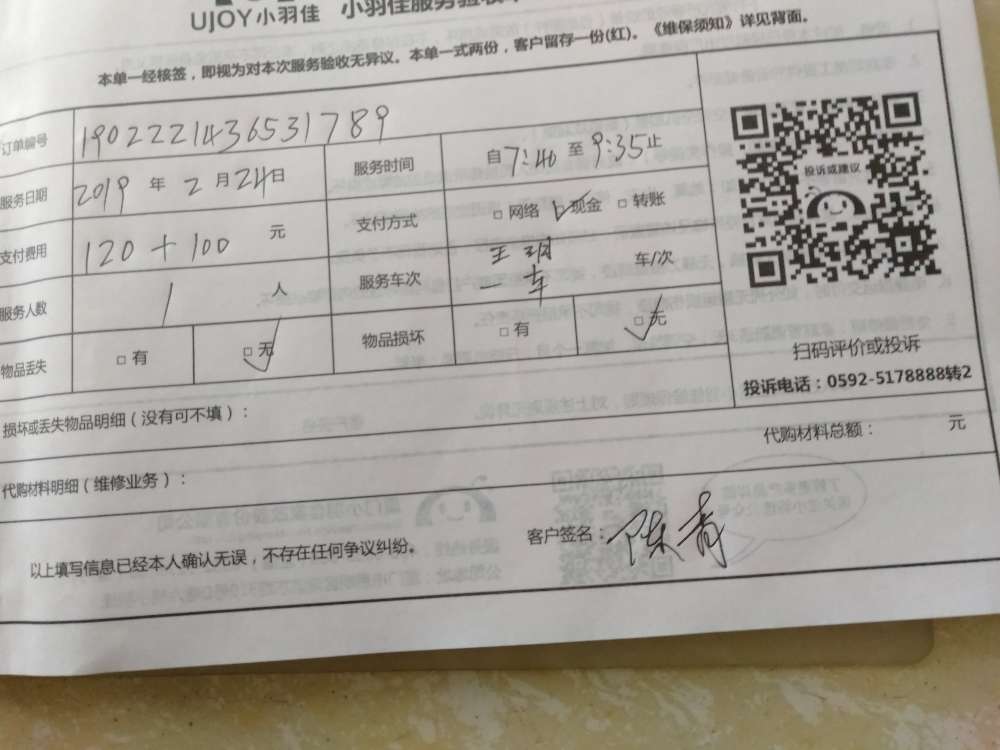 UJOY小羽佳 小羽佳服务验收单
本单一经核签，即视为对本次服务验收无异议。本单一式两份，客户留存一份(红)。《维保须知》详见背面。
订单编号 1902221436531789
服务日期 2019 年 2 月 24 日 服务时间 自 7:40 至 9:35 止
支付费用 120 + 100 元 支付方式 □ 网络 □ 现金 □ 转账
服务人数 1 人 服务车次 车/次
物品丢失 □ 有 □ 无 物品损坏 □ 有 □ 无
投诉或建议
扫码评价或投诉
投诉电话：0592-5178888转2
损坏或丢失物品明细（没有可不填）：
代购材料总额： 元
代购材料明细（维修业务）：
以上填写信息已经本人确认无误，不存在任何争议纠纷。
客户签名：陈青